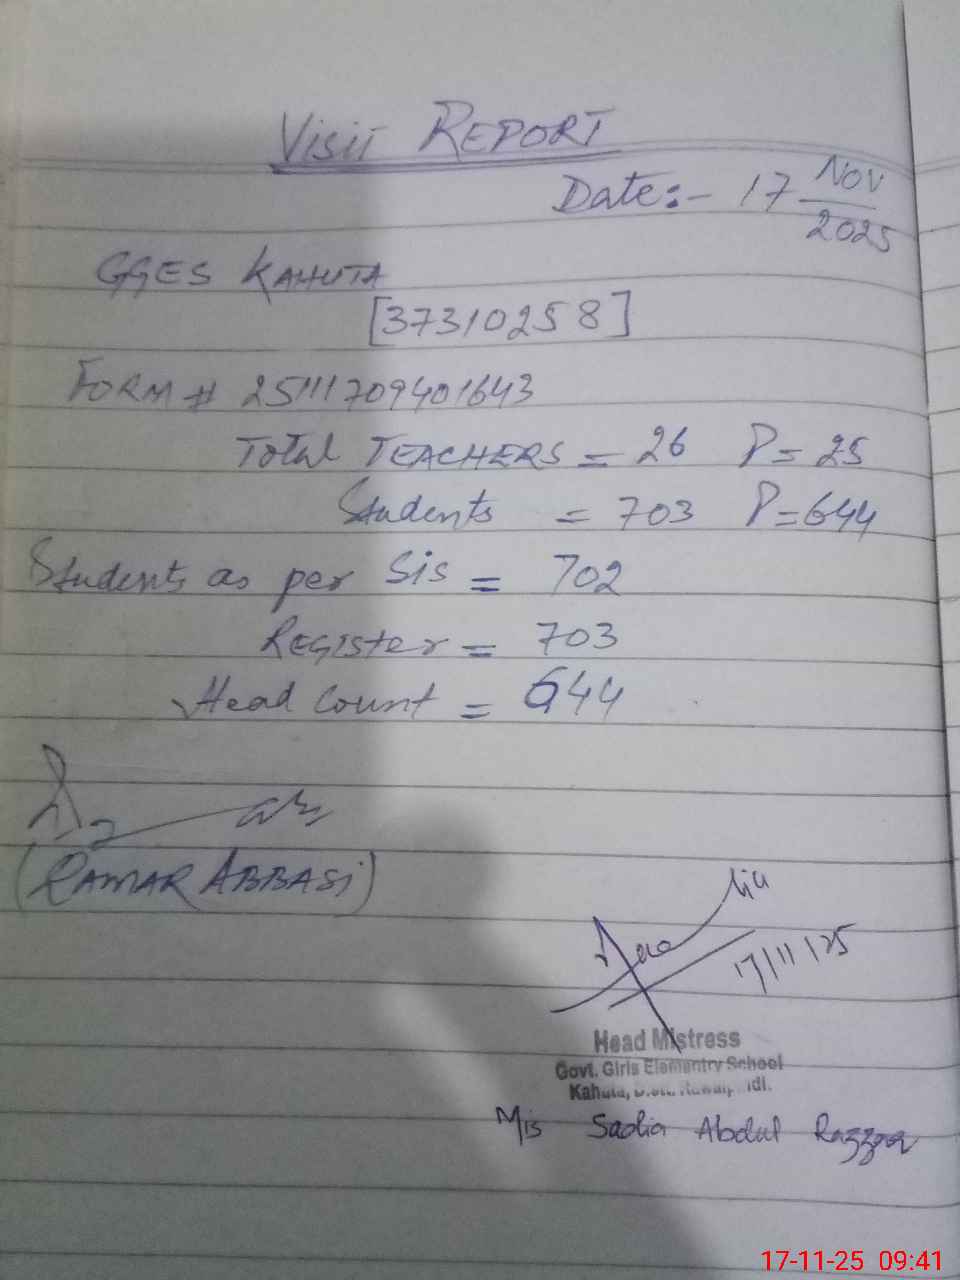 Visit REPORT
Date:- 17 Nov 2025
GGES KAHUTA
[37310258]
FORM # 25111709401643
Total TEACHERS = 26 P= 25
Students = 703 P=644
Students as per Sis = 702
REGISter = 703
Head Count = 644
(QAMAR ABBASi)
17/11/25
Head Mistress
Govt. Girls Elementry School
Kahuta, Distt. Rawalpindi.
Mis Sadia Abdul Razzaq
17-11-25 09:41